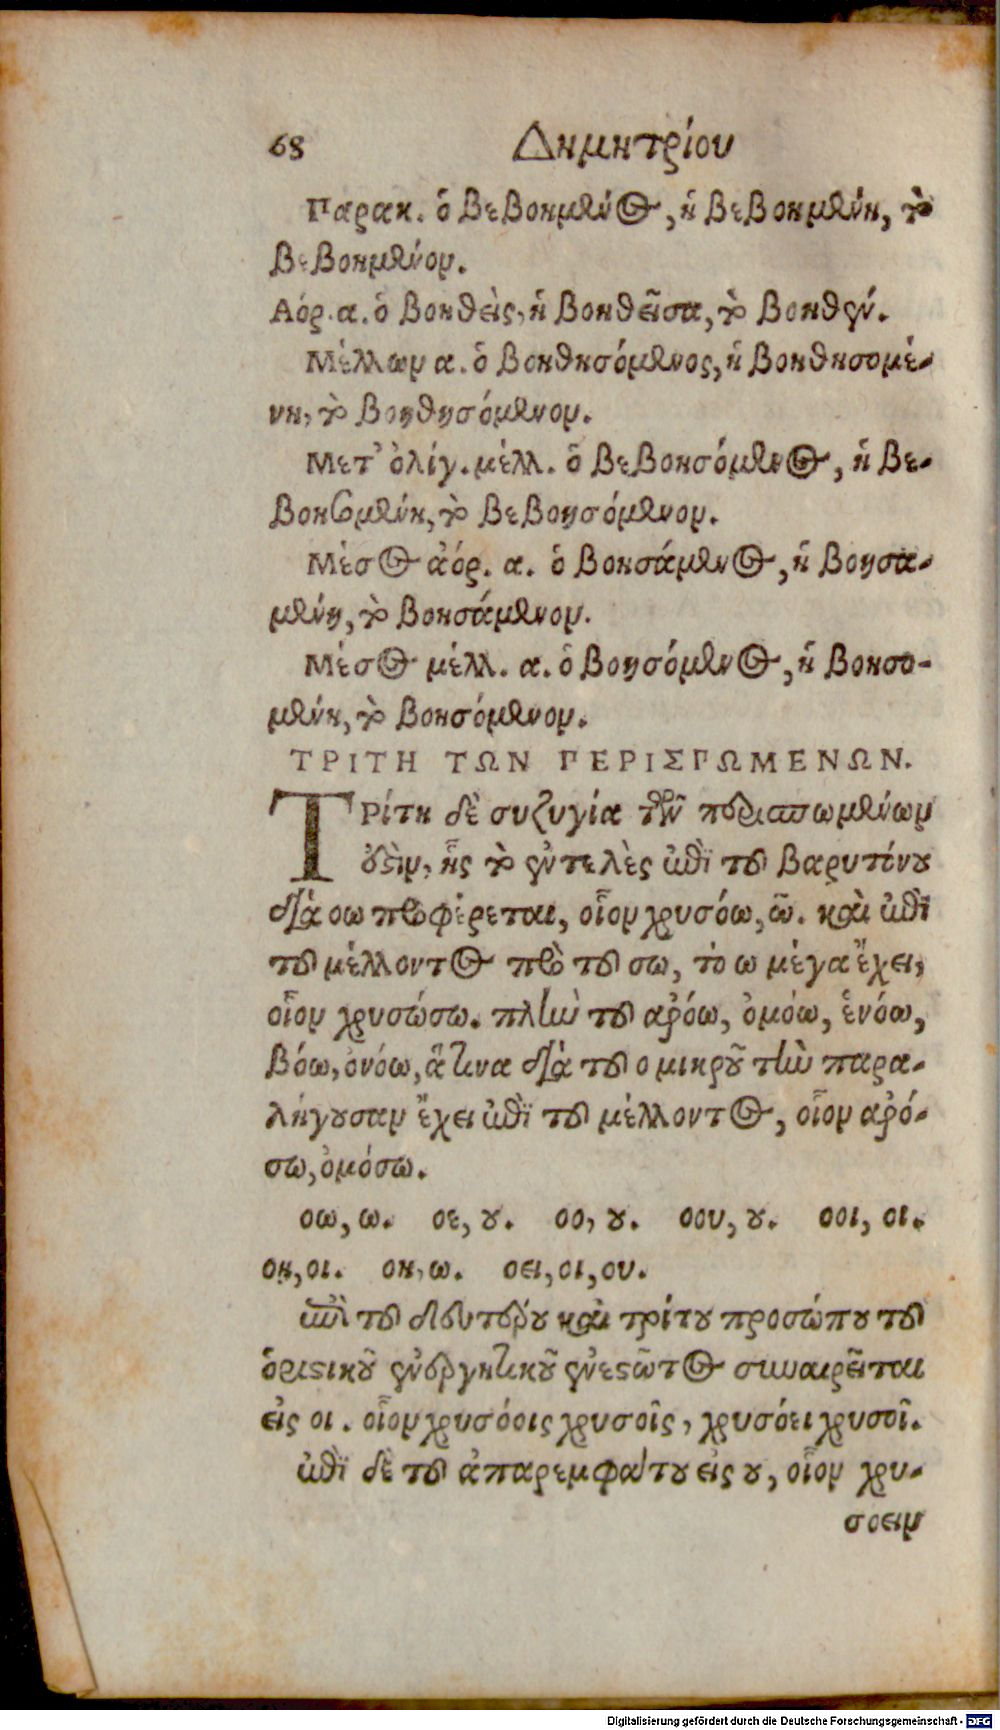 68 Δημητρίου
Παρακ. ὁ βεβοημένος, ἡ βεβοημένη, τὸ
βεβοημένον.
Αόρ. α. ὁ βοηθεὶς, ἡ βοηθεῖσα, τὸ βοηθέν.
Μέλλων α. ὁ βοηθησόμενος, ἡ βοηθησομέ-
νη, τὸ βοηθησόμενον.
Μετ' ὀλίγ. μέλλ. ὁ βεβοησόμενος, ἡ βε-
βοησομένη, τὸ βεβοησόμενον.
Μέσος ἀόρ. α. ὁ βοησάμενος, ἡ βοησα-
μένη, τὸ βοησάμενον.
Μέσος μέλλ. α. ὁ βοησόμενος, ἡ βοησο-
μένη, τὸ βοησόμενον.
ΤΡΙΤΗ ΤΩΝ ΠΕΡΙΣΠΩΜΕΝΩΝ.
ΤΡίτη δὲ συζυγία τῶν περισπωμένων
ἐστὶν, ἧς τὸ ἐντελὲς ἐπὶ τοῦ βαρυτόνου
διὰ οω προφέρεται, οἷον χρυσόω, ῶ. καὶ ἐπὶ
τοῦ μέλλοντος πρὸ τοῦ σω, τὸ ω μέγα ἔχει,
οἷον χρυσώσω. πλὴν τοῦ ἀρόω, ὀμόω, ἑνόω,
βόω, ὀνόω, ἅτινα διὰ τοῦ ο μικροῦ τὴν παρα-
λήγουσαν ἔχει ἐπὶ τοῦ μέλλοντος, οἷον ἀρό-
σω, ὀμόσω.
οω, ω. οε, ου. οο, ου. οου, ου. οοι, οι.
οη, οι. οη, ω. οει, οι, ου.
ἐπὶ τοῦ δευτέρου καὶ τρίτου προσώπου τοῦ
ὁριστικοῦ ἐνεργητικοῦ ἐνεστῶτος συναιρεῖται
εἰς οι. οἷον χρυσόοις χρυσοῖς, χρυσόει χρυσοῖ.
ἐπὶ δὲ τοῦ ἀπαρεμφάτου εἰς ου, οἷον χρυ-
σοειν
Digitalisierung gefördert durch die Deutsche Forschungsgemeinschaft - DFG